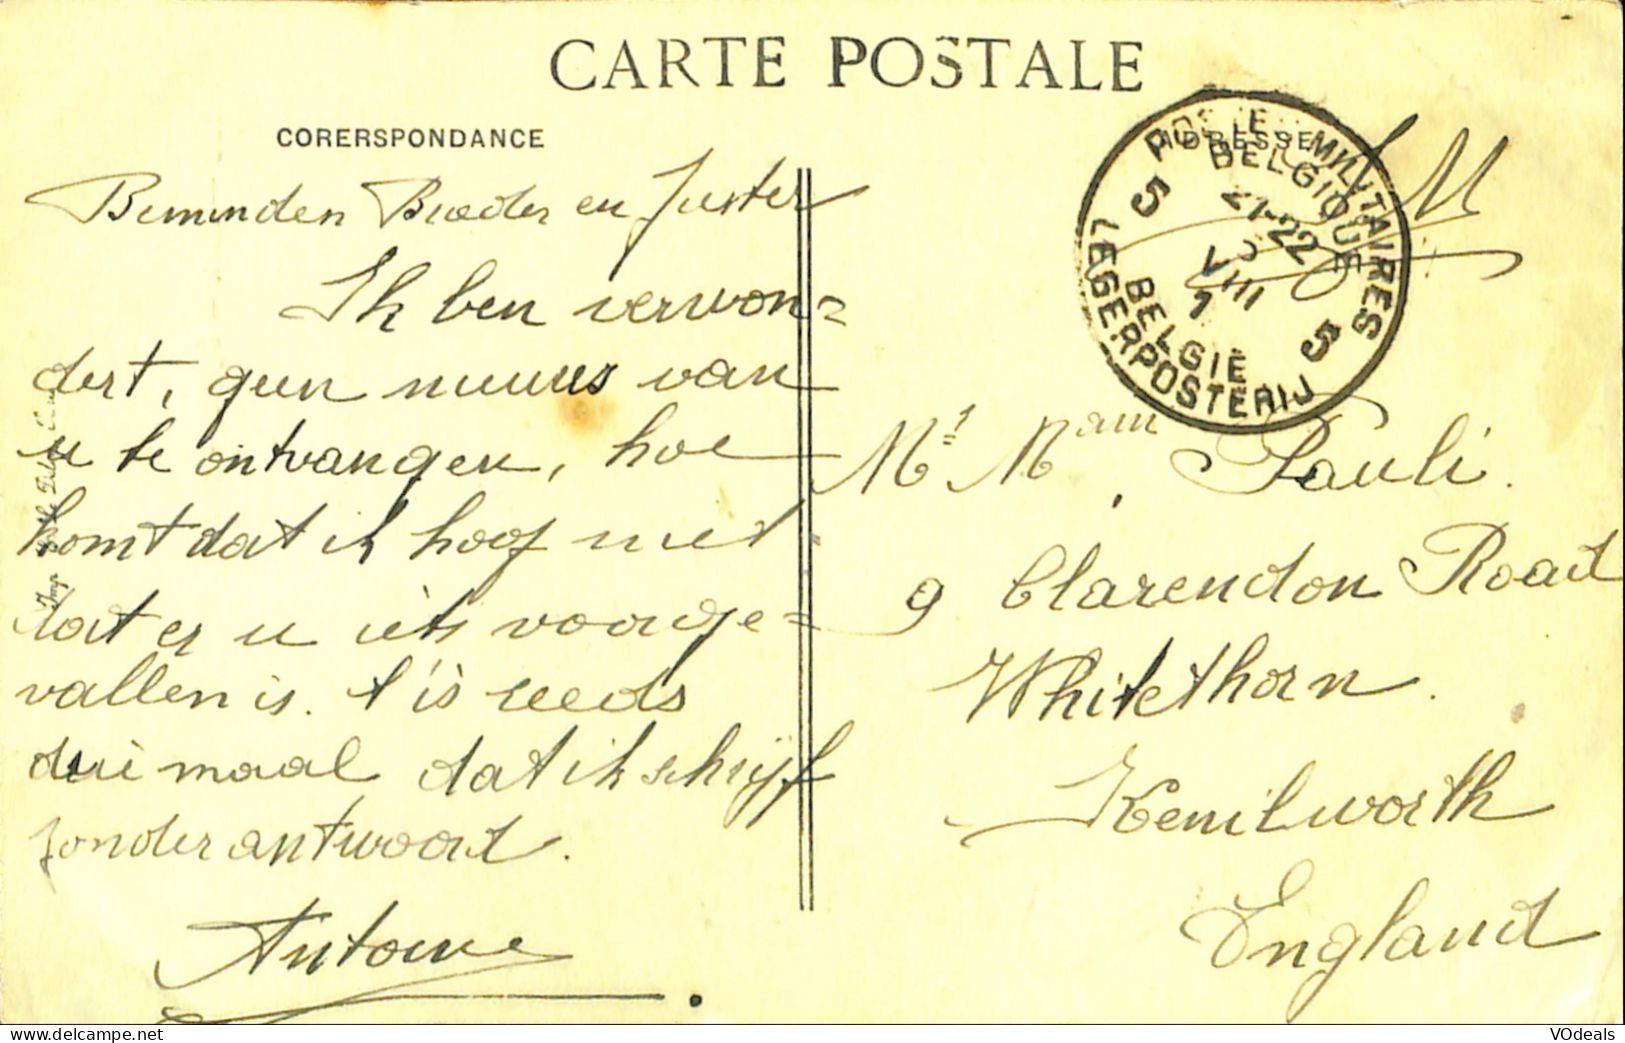 CARTE POSTALE
CORERSPONDANCE
ADRESSE
Beminden Broeder en Zuster
Ik ben verwon-
dert, geen nieuws van
u te ontvangen, hoe
komt dat ik hoop niet
dat er u iets voorge-
vallen is. t'is reeds
drie maal dat ik schrijf
zonder antwoord.
Antoine
POSTES MILITAIRES
BELGIQUE
5 5
21-22
VIII
BELGIË
LEGERPOSTERIJ
SM
Mr Mam Pauli.
9 Clarendon Road
Whitethorn.
Kenilworth
England
Imp
VOdeals